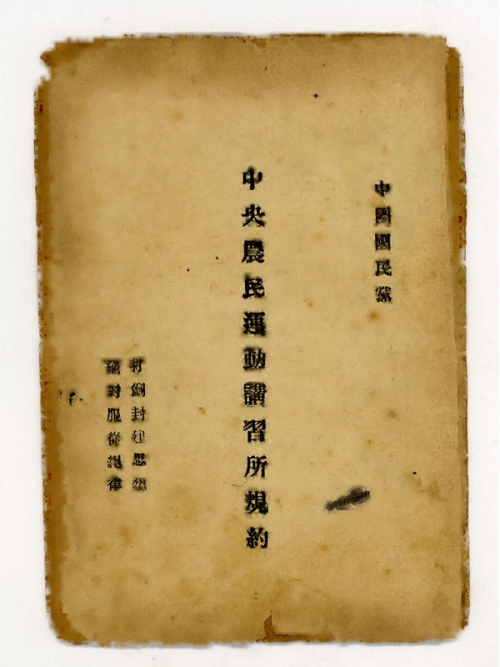 中國國民黨
中央農民運動講習所規約
打倒封建思想
絕對服從規律